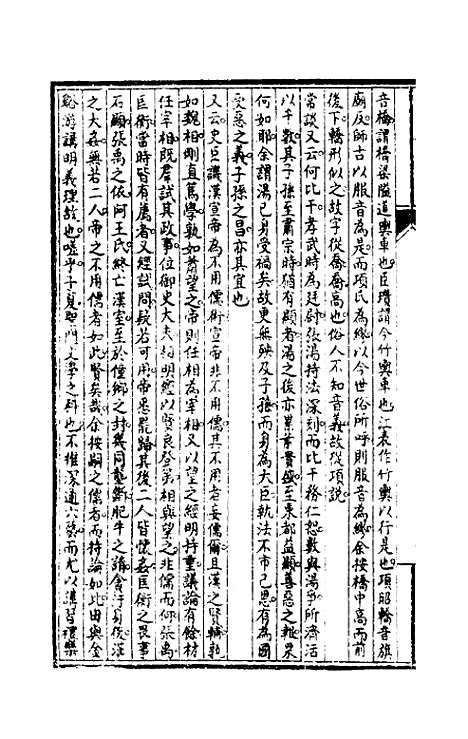 音橋謂橋梁隘道輿車也臣瓚謂今竹輿車也江表作竹輿以行是也項昭轎音旗
廟反師古以服音為是而項氏為繆以今世俗所呼則服音為繆余按橋中高而前
後下轎形似之故字從喬喬高也俗人不知音義故從項說
常談又云何比干孝武時為廷尉張湯持法深刻而比干務仁恕數與湯爭所濟活
以千數其子孫至肅宗時猶有顯者湯之後亦累葉貴盛至東都益顯善惡之報果
何如耶余謂湯已身受禍矣故更無殃及子孫而身為大臣執法不巿己恩有為國
受惡之義子孫之昌亦其宜也
又云史臣譏漢宣帝為不用儒術宣帝非不用儒其不用者妄儒爾且漢之賢輔孰
如魏相剛直篤學孰如蕭望之帝則任相為宰相又以望之經明持重議論有餘材
任宰相既屢試其政事位御史大夫相明經以賢良登第相與望之非儒而仰張禹
匡衡當時皆有薦者又經試問數若可用帝悉罷歸其後二人皆懷姦匡衡之畏事
石顯張禹之依阿王氏終亡漢室至於僮鄉之封幾同壟斷肥牛之請貪污身後漢
之大姦無若二人帝之不用儒者如此賢矣哉余按嗣之儒者而持論如此由與金
谿游講明義理故也嗟乎子夏聖門文學之科也不推深通六藝而尤以講習禮樂